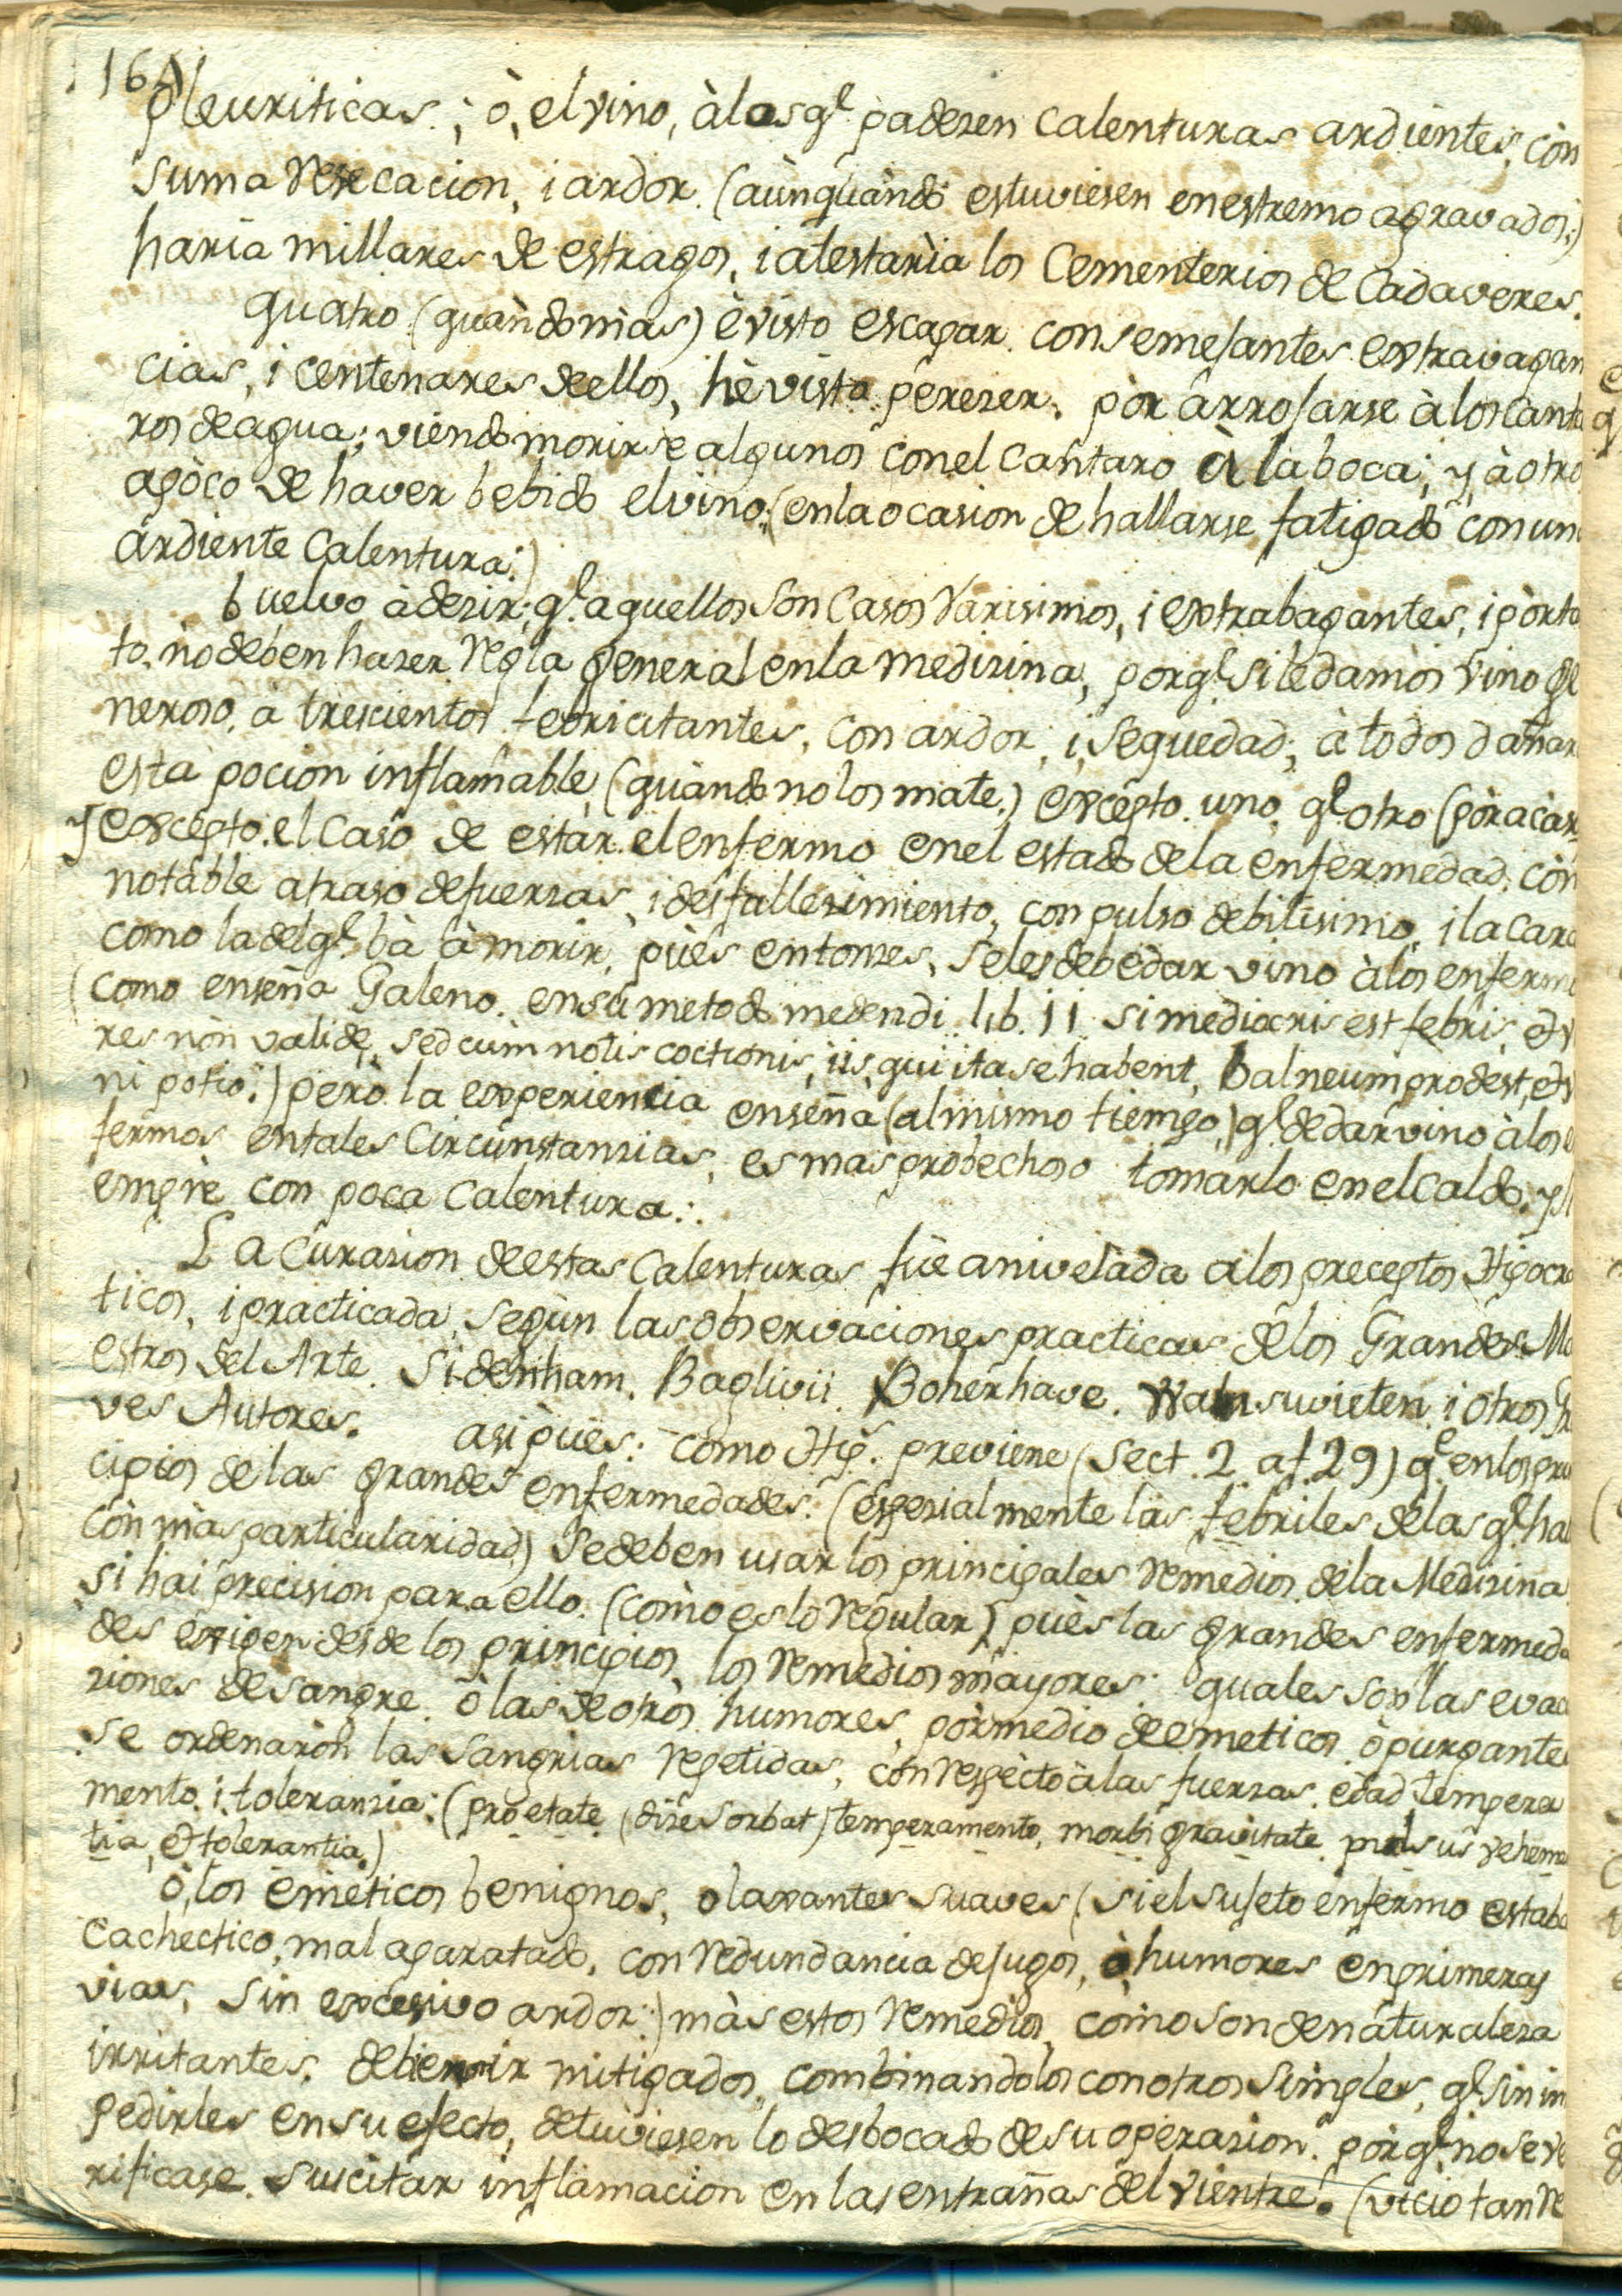 164)
pleuriticas.; ò, el vino, à las ql. padezen calenturas ardientes, còn
suma resecacion, i ardor. (aùnquàndo estuviesen en estremo agravados;)
haria millares de estragos, i atestarìa los Cementerios de Cadaveres.
quatro (quàndo màs) è visto escapar. con semejantes extravagan
cias, i centenares de ellos, hè visto perezer, pòr arrojarse à los cànta
ros de agua; viendo morirse algunos con el cantaro à la boca; y à otro
a pòco de haver bebido el vino; (en la ocasion de hallarse fatigado con un
ardiente calentura.)
buelvo à dezir; ql. aquellos son casos rarisimos, i extrabagantes, i pòr ta
to, nò deben hazer regla general en la medizina, porql. si le damòs vino ge
neroso, à trescientos febricitantes, con ardor, i sequedad; à todos dañar
està pocion inflamable, (quàndo no los mate.) excépto. uno, ql. otro (pòr acàs
y excépto. el caso de estàr el enfermo en el estado de la enfermedad, còn
notàble atraso de fuerzas, i desfallezimiento, con pulso debilisimo, i la cara
como la del ql. bà à morir, pùes entonzes, se les debe dar vino à los enferm
(como enseña Galeno. en sù metodo medendi. lib. 11. si mediocris est febris, et v
res nòn valide, sed cùm notis coctionis, iis, qui ita se habent, balneum prodest, et v
ni potio.) però la experiencia enseña (al mismo tiempo,) ql. de dar vino à los e
fermos en tales circùnstanzias, es mas probechoso tomarlo en el caldo, y si
empre con poca calentura.:.
La curazion de estas calenturas fùe anivelàda a los preceptos Hipocra
ticos, i practicada, segùn las observaciones practicas de los Grandes Ma
estros del Arte. Sidenham. Baglivii. Boherhave. Wansuvieten. i otros gra
ves Autores. asi pùes: como Hip. previene (Sect. 2. af. 29) ql. en los prin
cipios de las grandes enfermedades. (espezialmente las febriles de las ql. hab
còn màs particularidad) se deben usar los principales remedios de la Medizina
si hai precision para ello. (còmo es lo regular) pùes las grandes enfermeda
des exigen desde los principios, los remedios mayores: quales son las evacu
ziones de sangre. ò las de otròs humores, pòr medio de emeticos, ò purgante
se ordenaròn las sangrias repetidas, còn respècto à las fuerzas. edad tempera
mento. i toleranzia: (pro etate (dize Sorbat) temperamento, morbi gravitate, pulsus vehemen
tia, et tolerantia.)
ò, los emèticos benignos, o laxantes suaves (si el sujeto enfermo estaba
Cachectico, mal aparatado, con redundancia de jugos, ò humores en primeras
vias, sin excesivo ardor:) màs estos remedios, còmo son de nàturaleza
irritantes, debieron ir mitigados, combinandolos con otros simples, ql. sin im
pedirles en su efecto, detùviesen lo desbocado de su operazion. pòr ql. no se ve
rificase. suscitar inflamacion en las entrañas del vientre. (vicio tan re